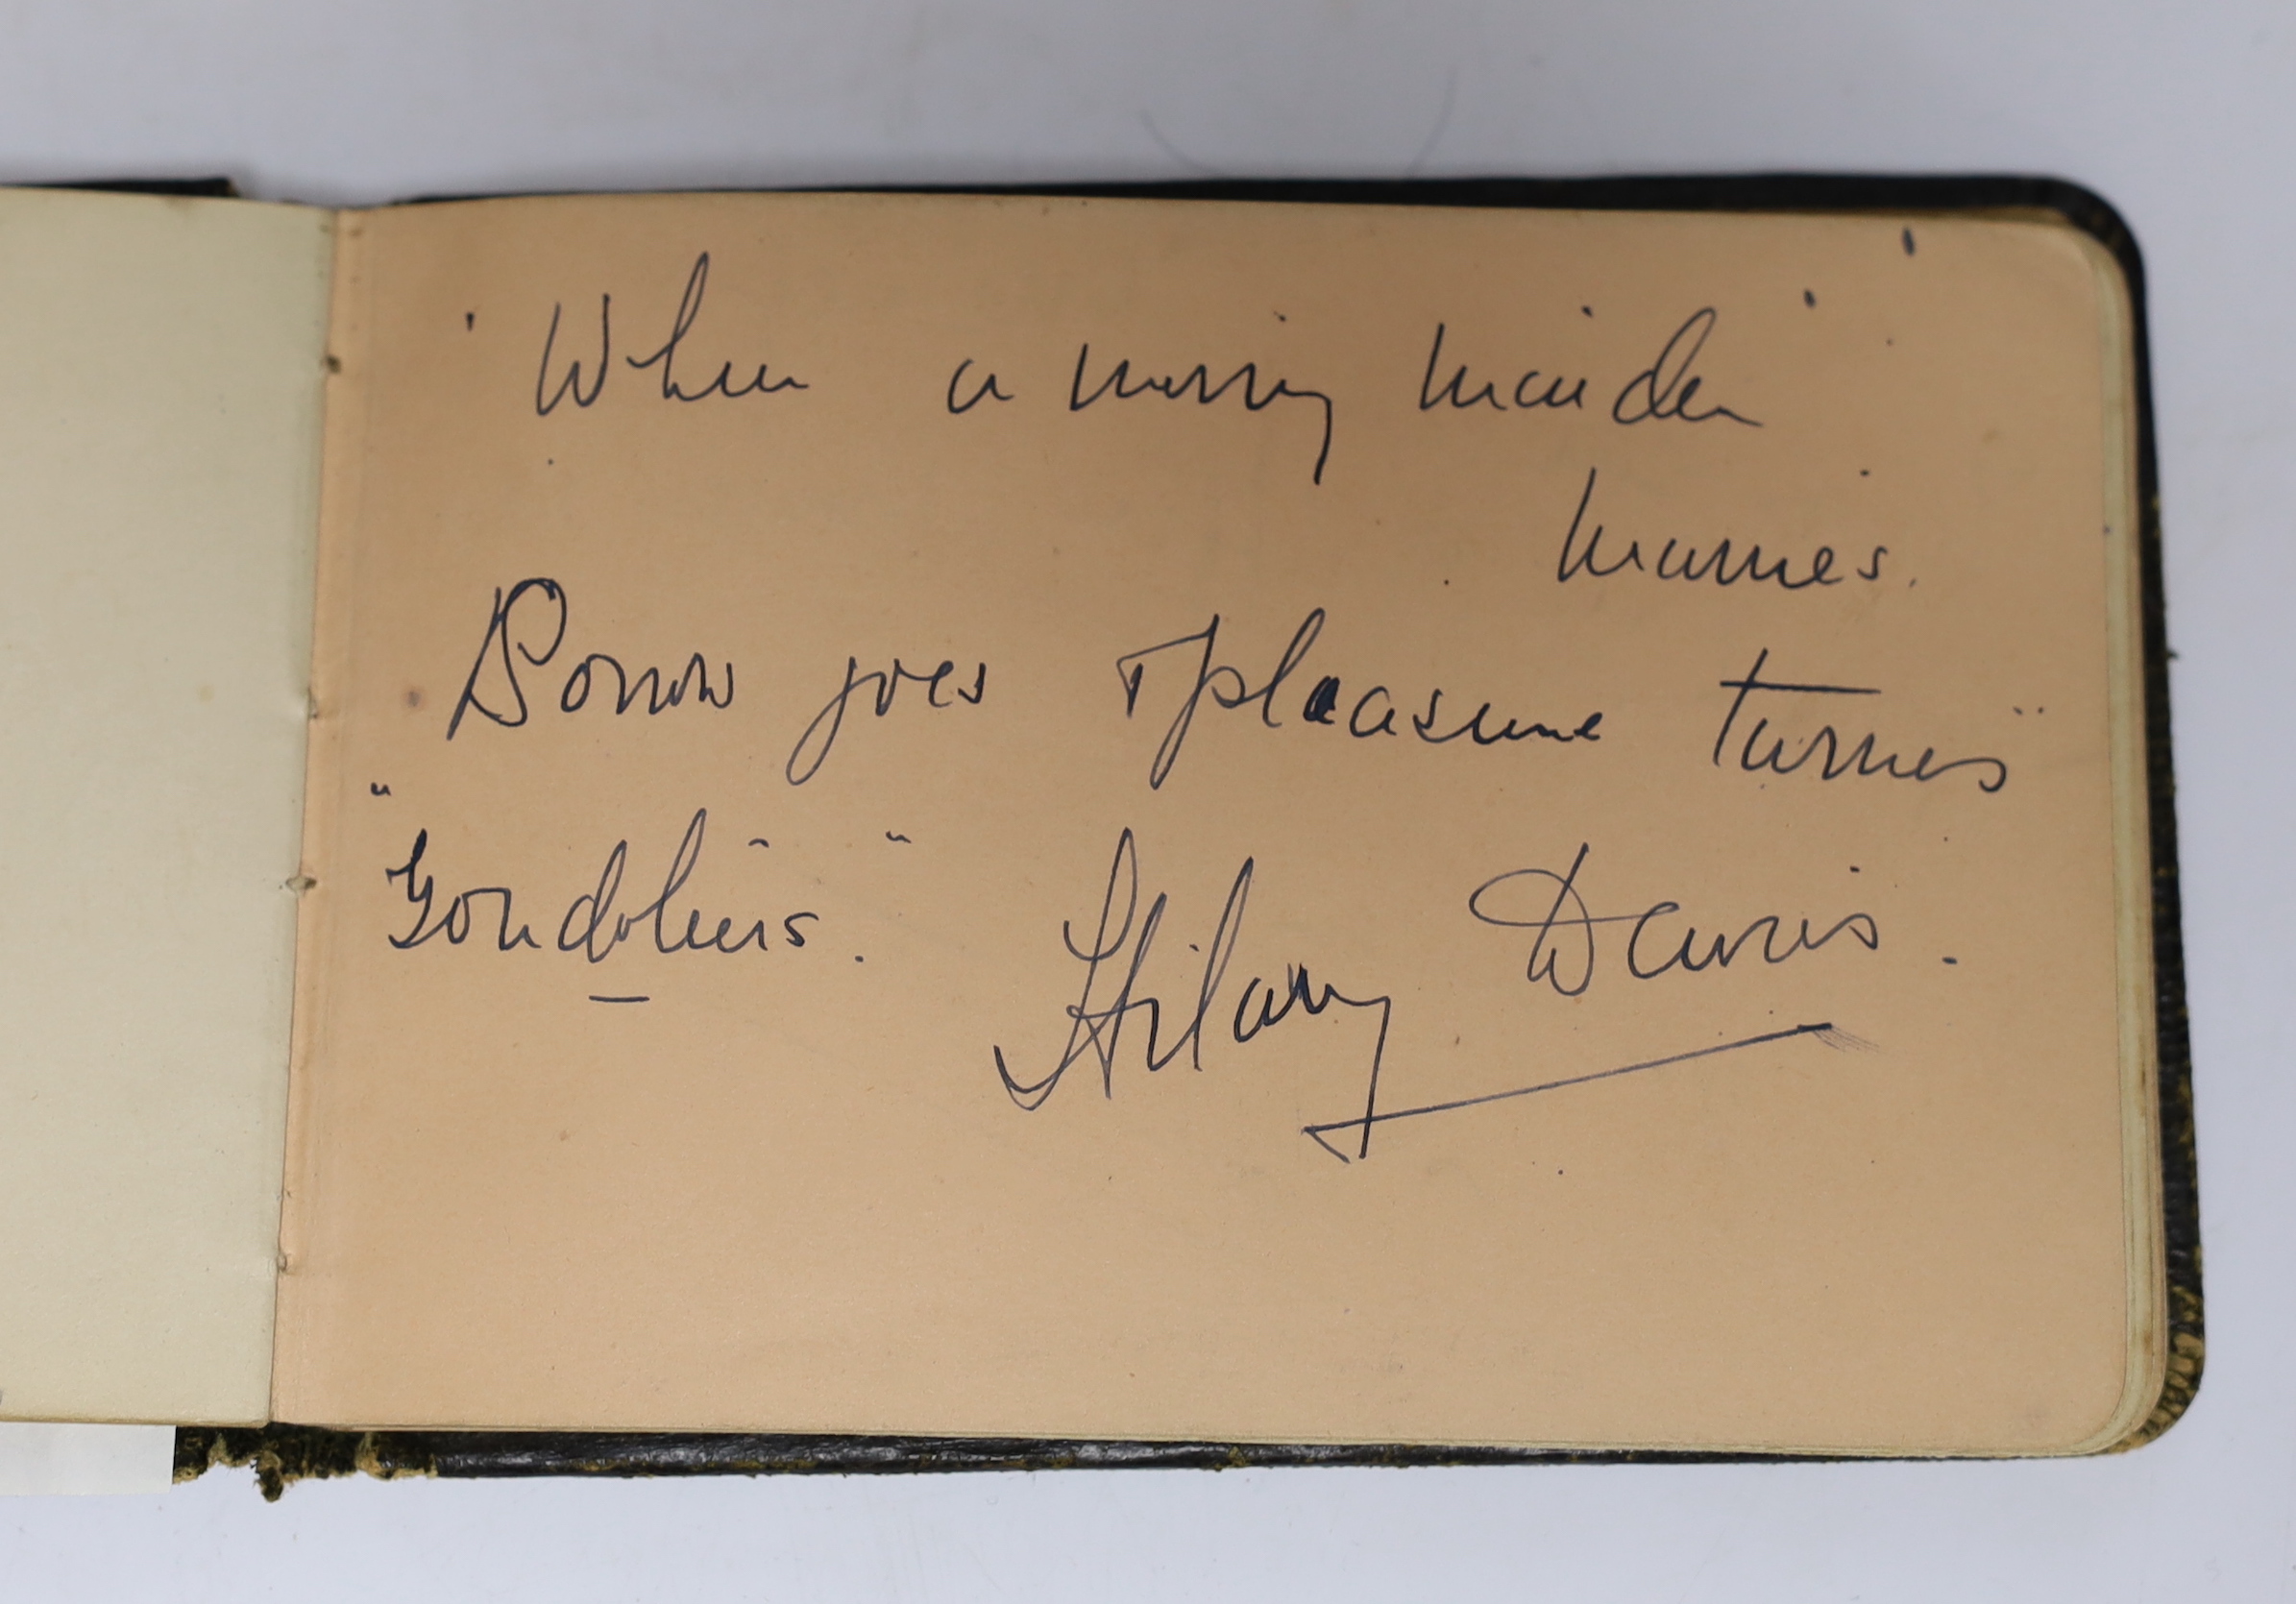 'When a merry maiden
marries.
Sorrow goes + pleasure tarries"
"Gondoliers."
Hilary Davies.